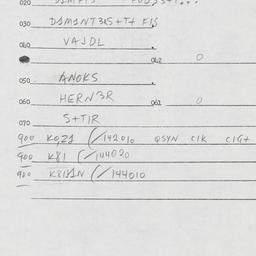 020
030 D1M1NT3KS+T+ FIS
040 VAJDL
062 0
050 ANOKS
060 HERN3R 061 0
070 S+T1R
900 KOZ1 (/142010 QSYN CIK CIG+
900 K81 (/144020
900 K81V1N (/144010